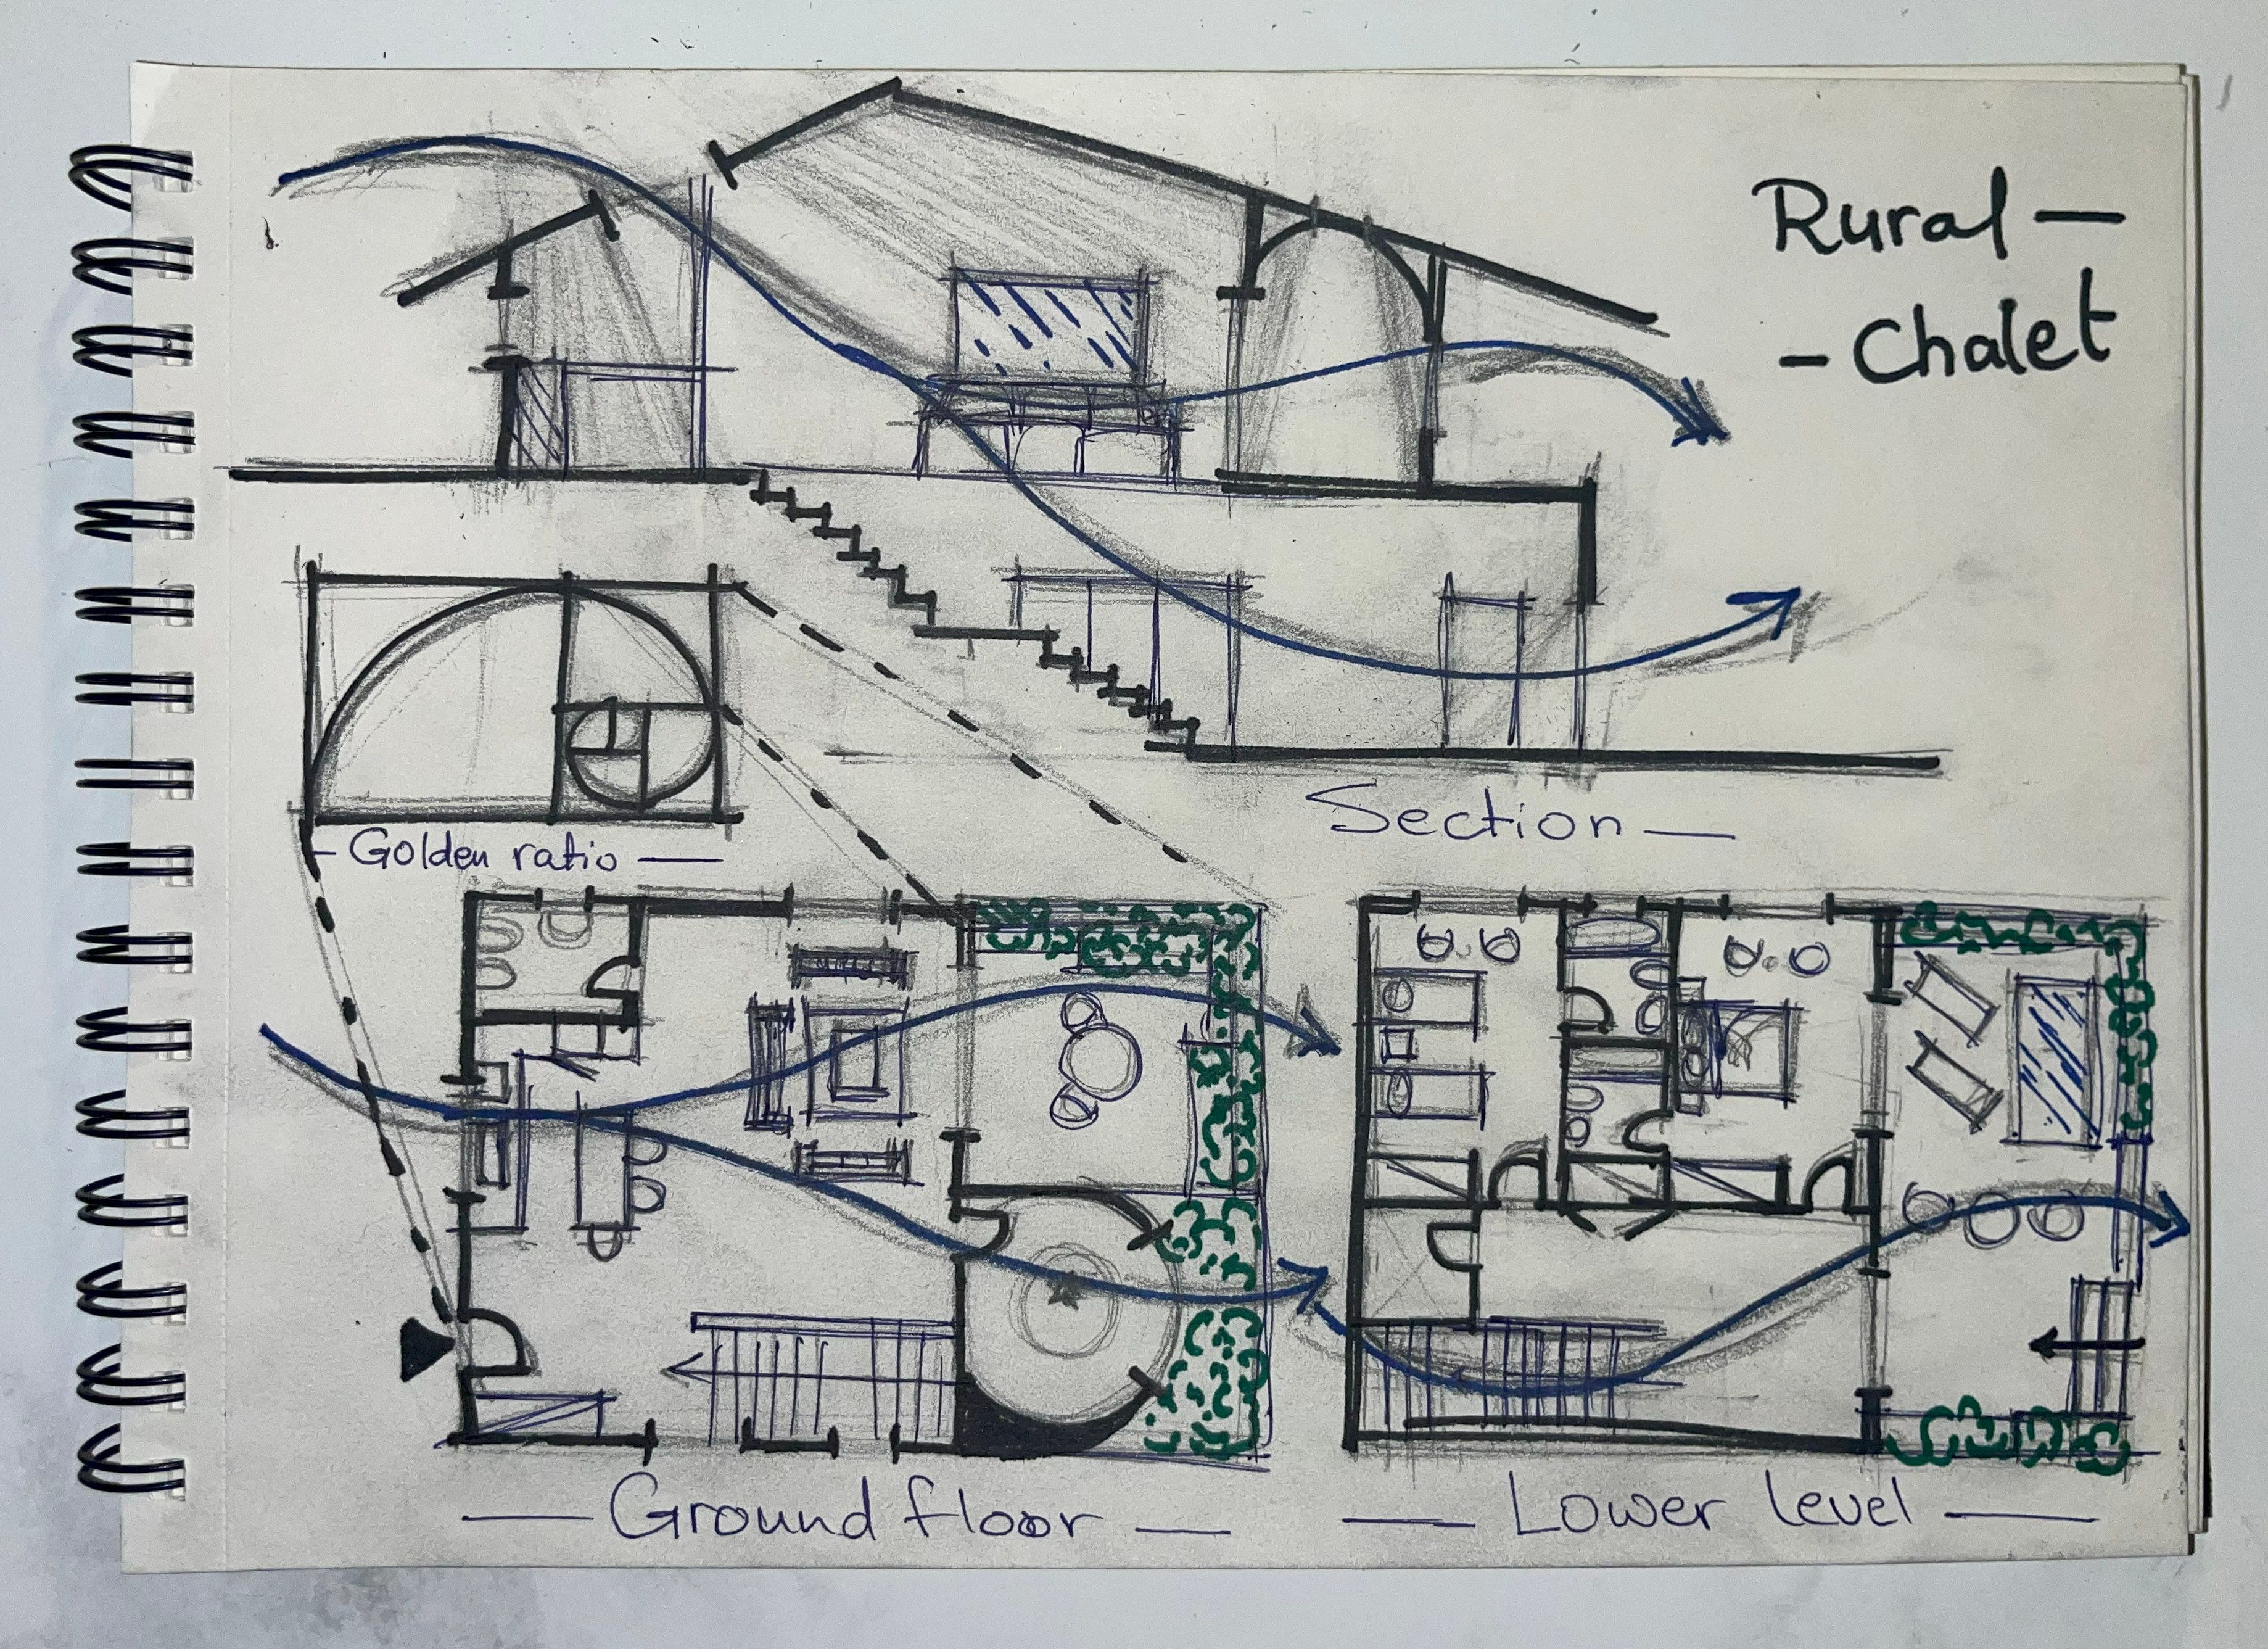 Rural —
- Chalet
Section —
- Golden ratio —
— Ground floor —
— Lower level —